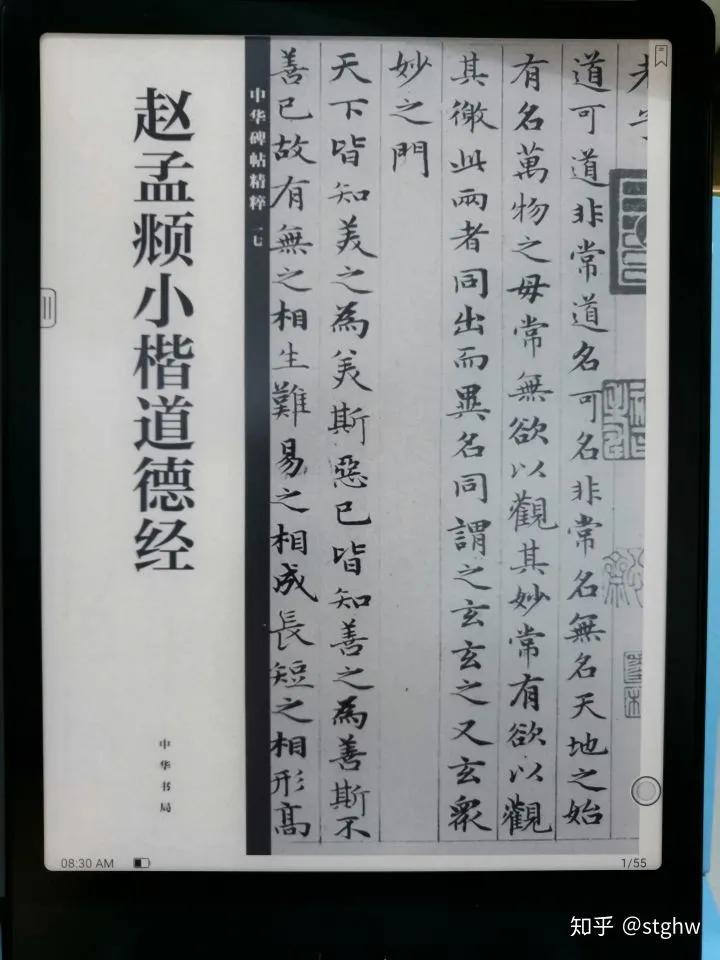 老子
道可道非常道名可名非常名無名天地之始
有名萬物之母常無欲以觀其妙常有欲以觀
其徼此兩者同出而異名同謂之玄玄之又玄眾
妙之門
天下皆知美之為美斯惡已皆知善之為善斯不
善已故有無之相生難易之相成長短之相形高
中华碑帖精粹 一七
赵孟𫖯小楷道德经
中华书局
08:30 AM
1/55
知乎 @stghw